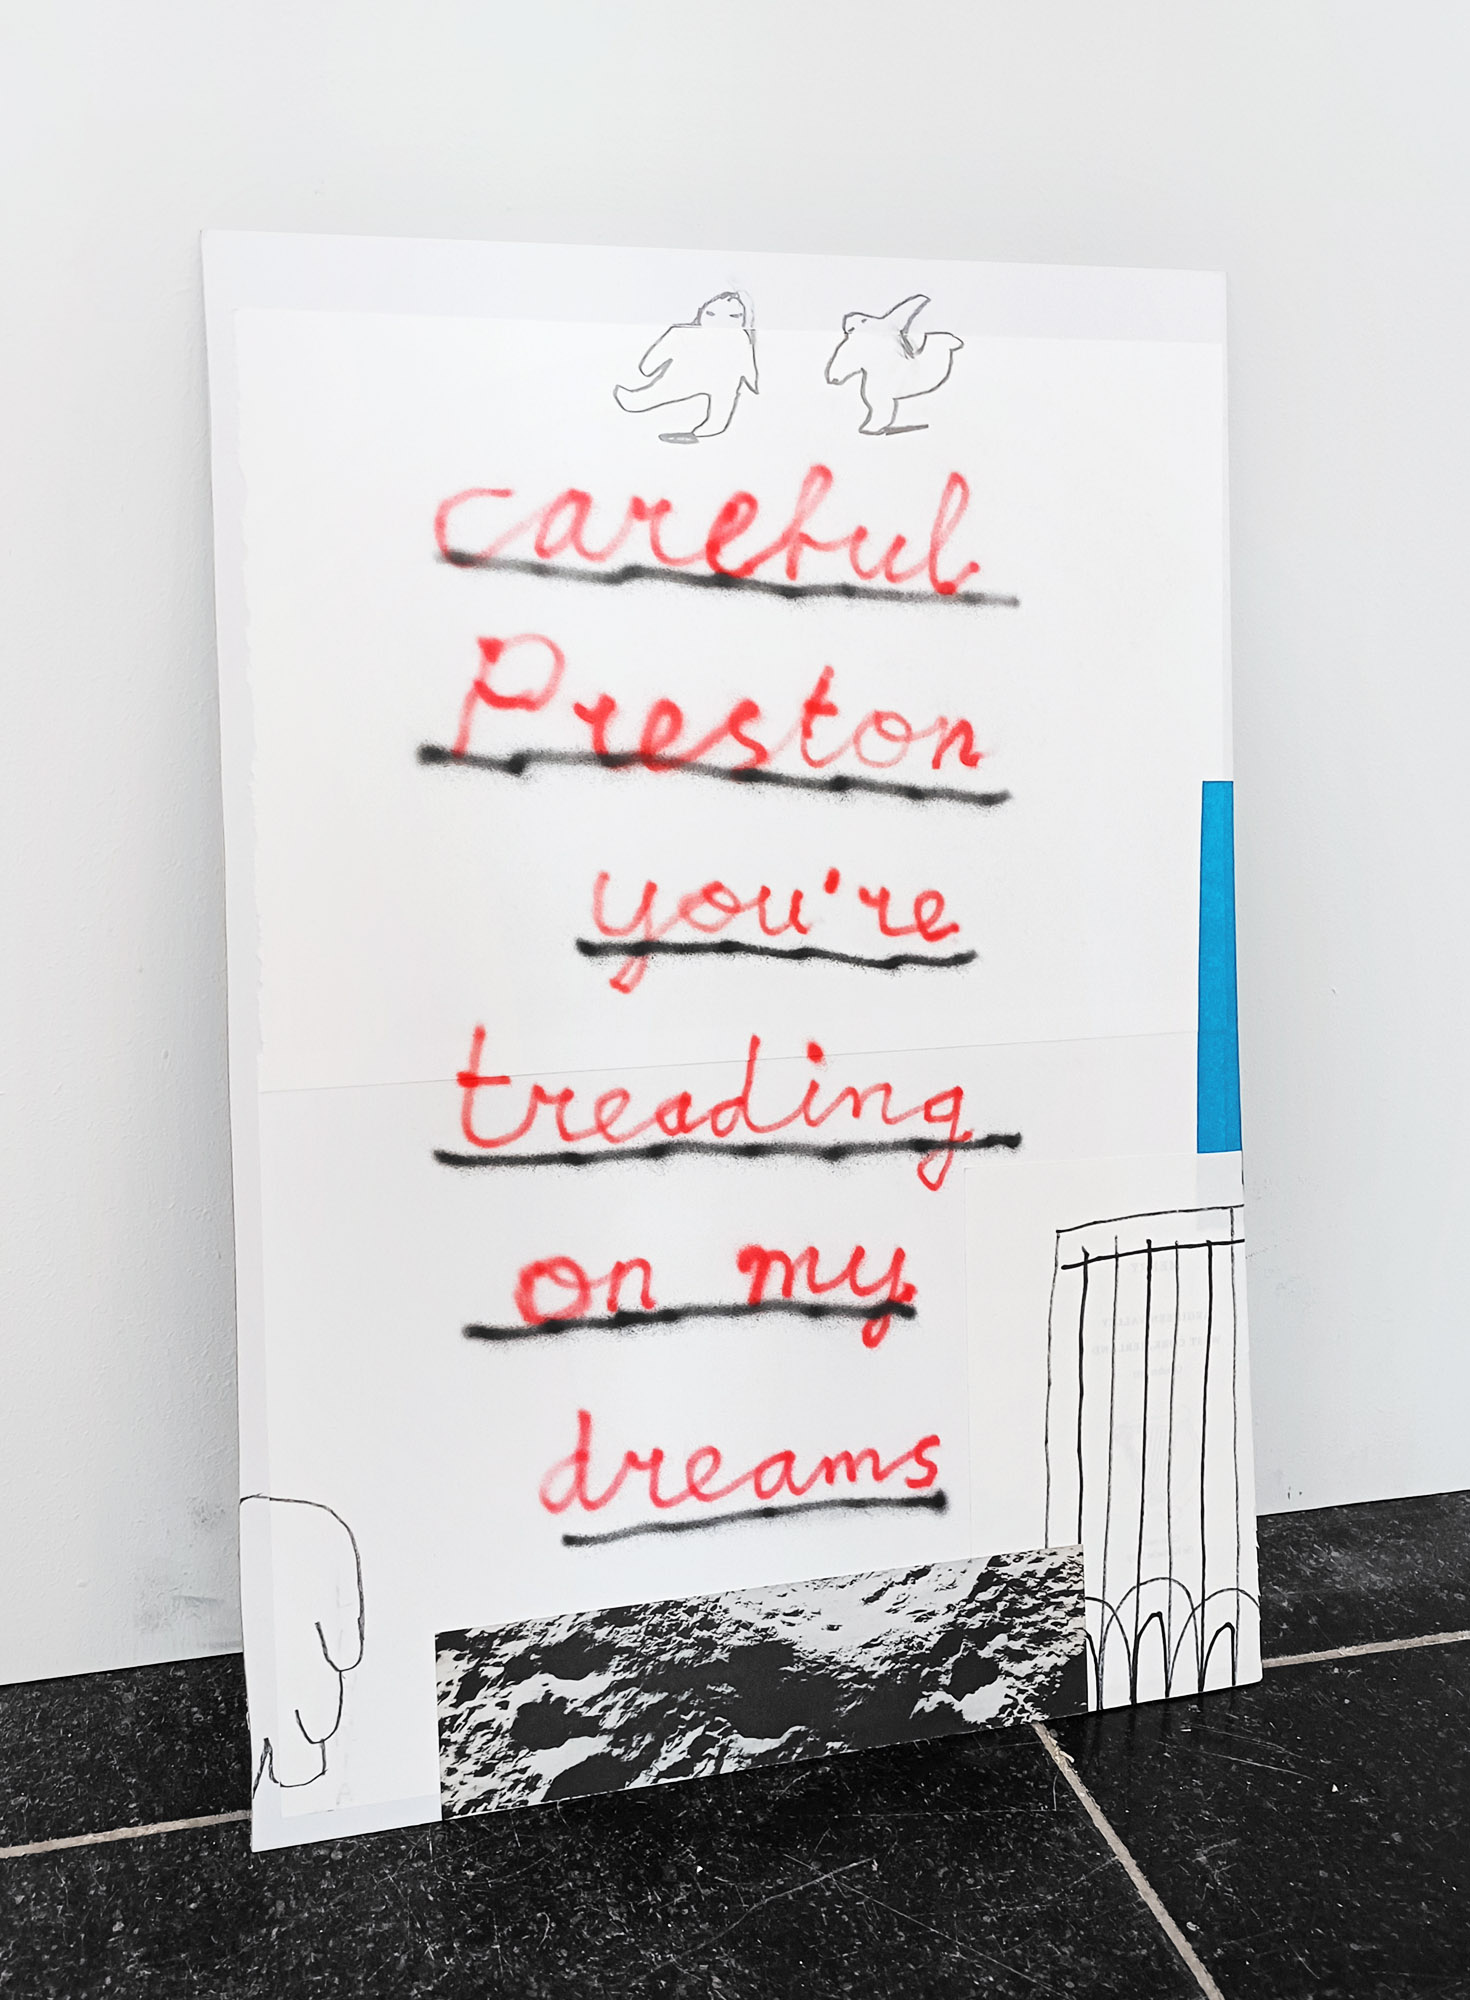 careful
Preston
you're
treading
on my
dreams